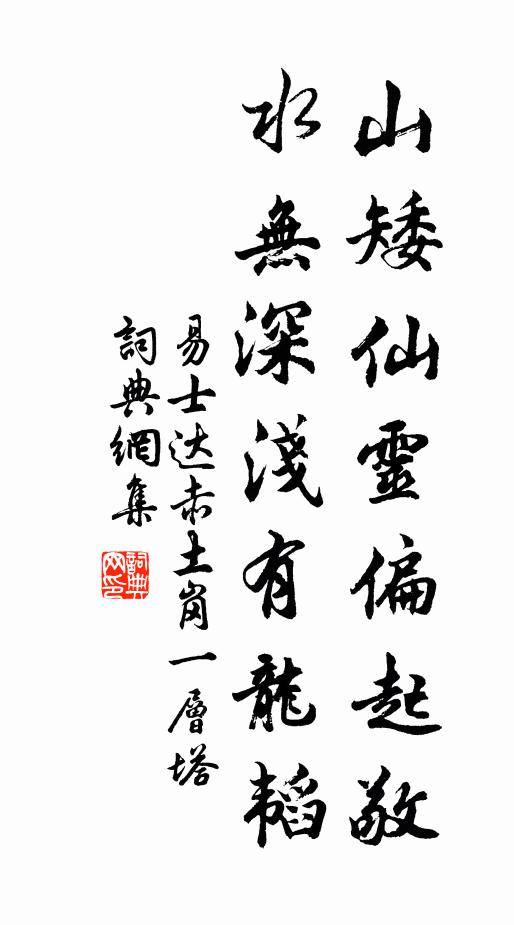 山矮仙靈偏起敬
水無深淺有龍韬
易士达赤土崗一層塔
詞典網集
詞典网印